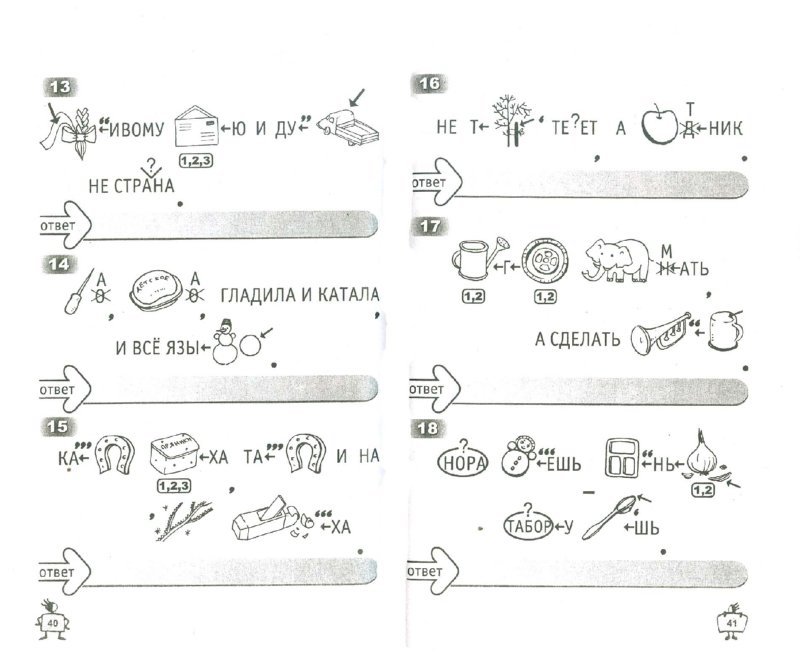 13
“ИВОМУ Ю И ДУ”
1,2,3
?
НЕ СТРАНА.
ответ
14
А А
О О
ДЕТСКОЕ
, , ГЛАДИЛА И КАТАЛА,
И ВСЁ ЯЗЫ.
ответ
15
КА’’’ ХА ТА’’’ И НА
1,2,3
,
“““ХА.
ответ
40
16
Т
НЕ Т ‘ ТЕ?ЕТ А Д НИК
, .
ответ
17
М
Г Ж АТЬ
1,2 1,2
,
А СДЕЛАТЬ “
.
ответ
18
? “““ЕШЬ “НЬ
НОРА
1,2
–
?
ТАБОР У ‘ШЬ.
ответ
41